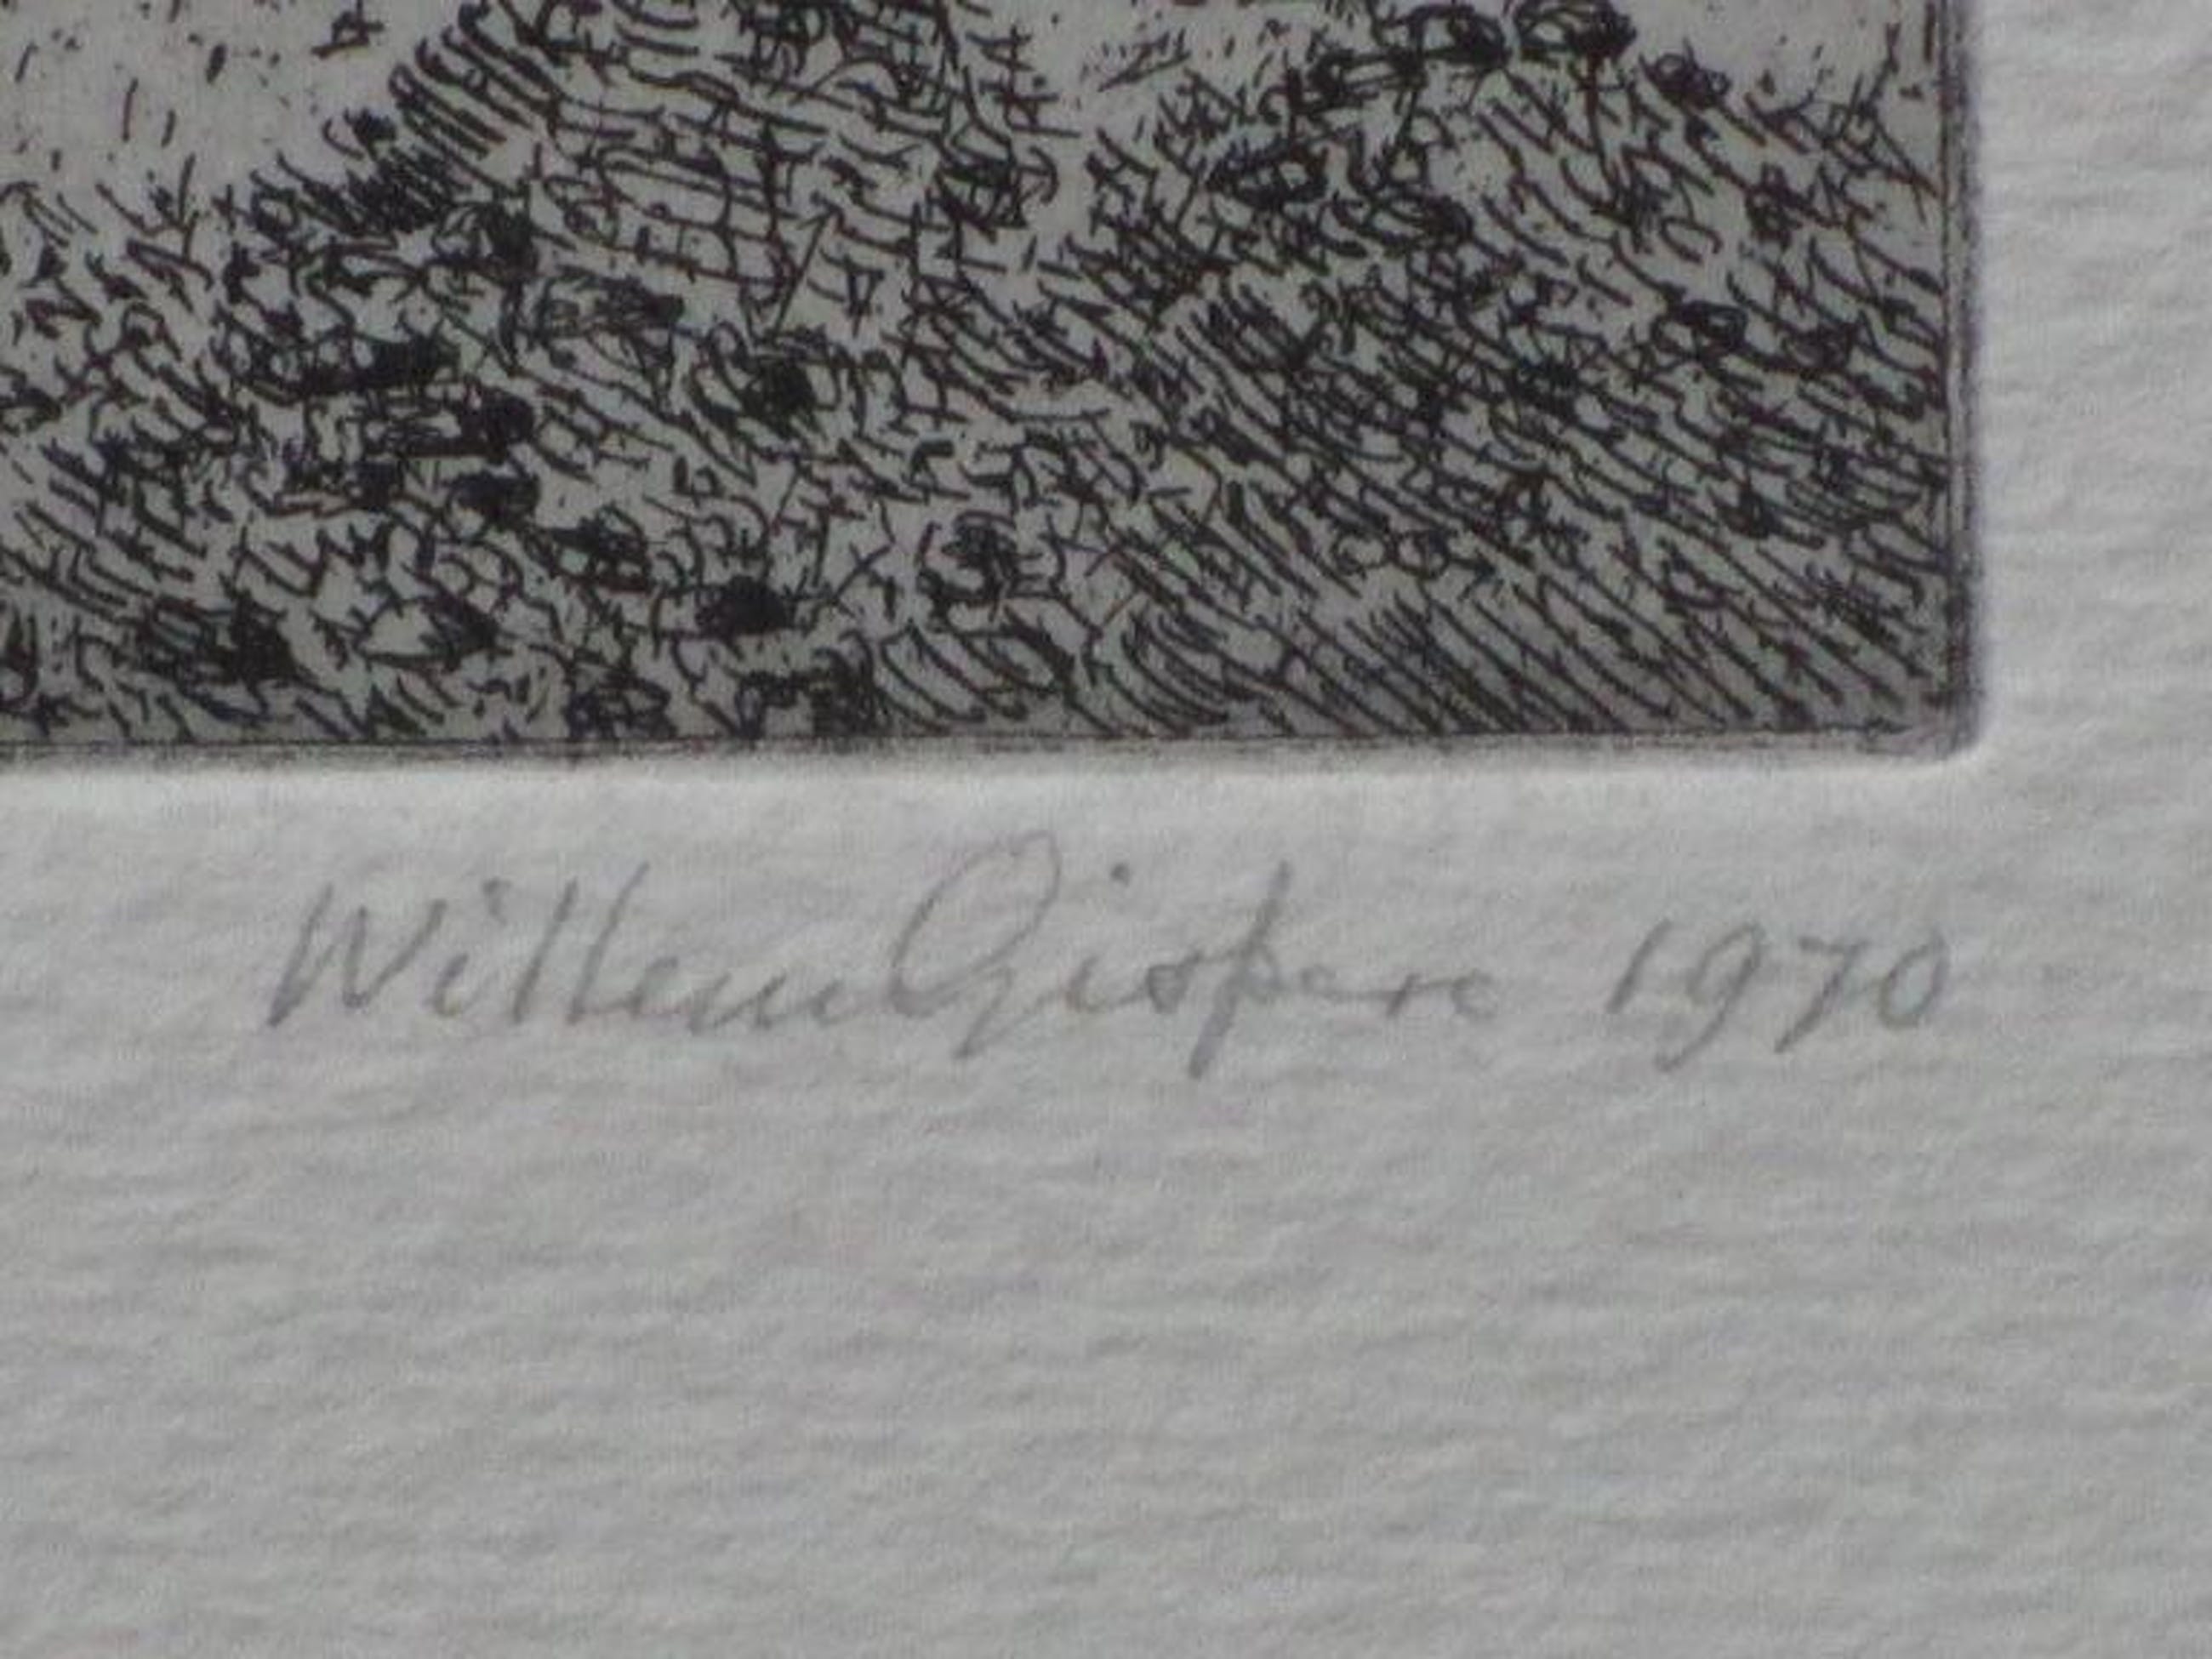 Willem Gispere 1970